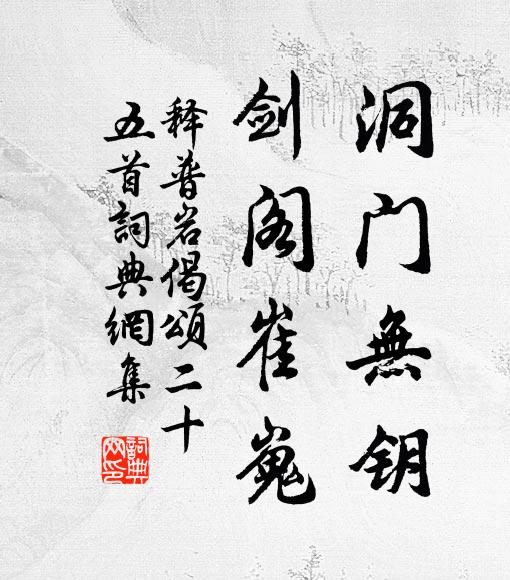 洞门無钥
剑阁崔嵬
释普岩偈頌二十
五首詞典網集
詞典網印